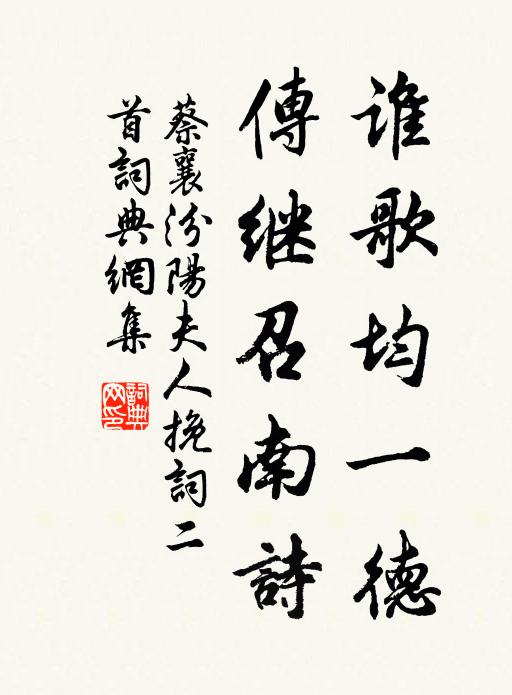 谁歌均一德
傳继召南詩
蔡襄汾陽夫人挽詞二
首詞典網集
詞典
网印